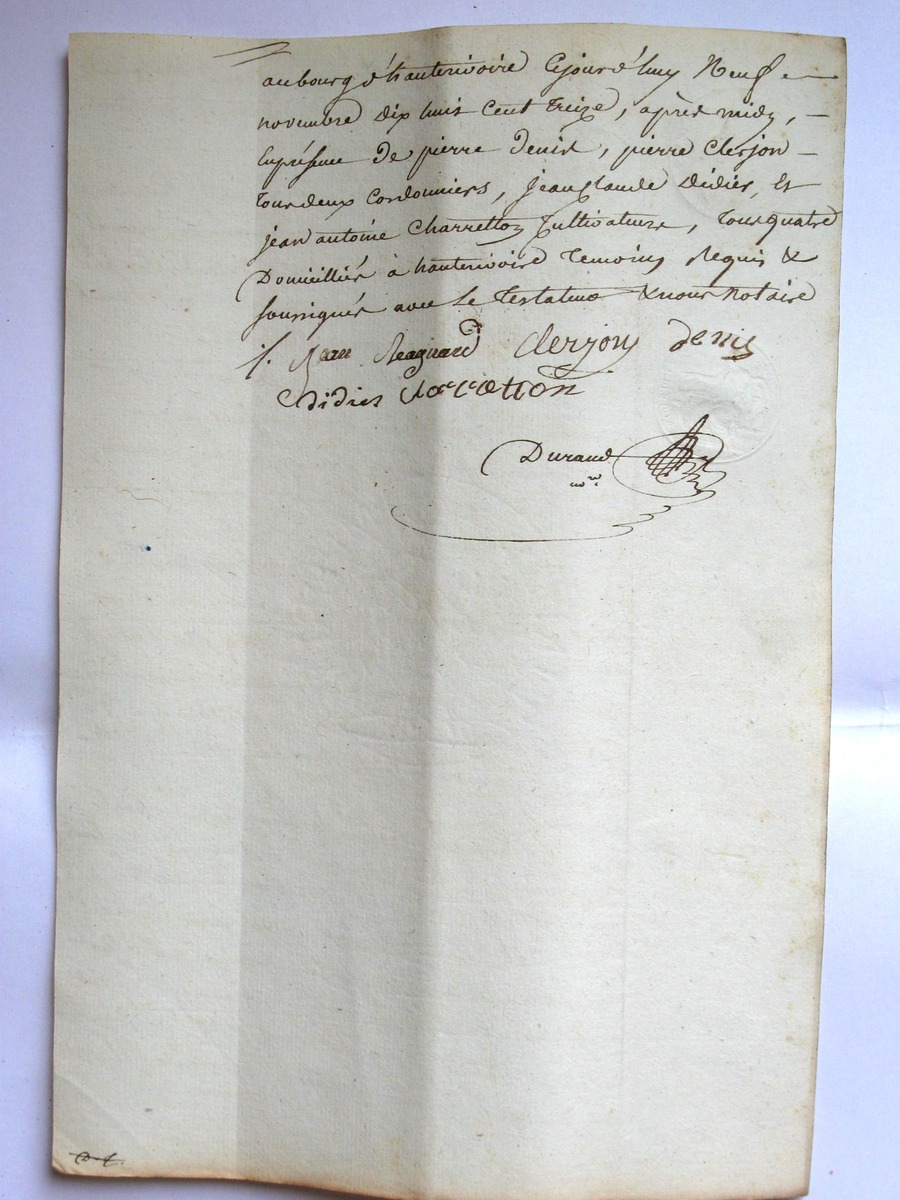 au bourg d'hauterivoire Cejourd'huy Neuf
novembre Dix huit Cent treize, après midy,
En présence De pierre Denis, pierre Clerjon
tous deux Cordonniers, Jean Claude Didier, Et
jean antoine Charretton Cultivateurs, Tous quatre
Domiciliés à hauterivoire Temoins Requis &
soussignés avec Le Testateur & nous Notaire
Jean Clerjon denis
didier
Durand
nore